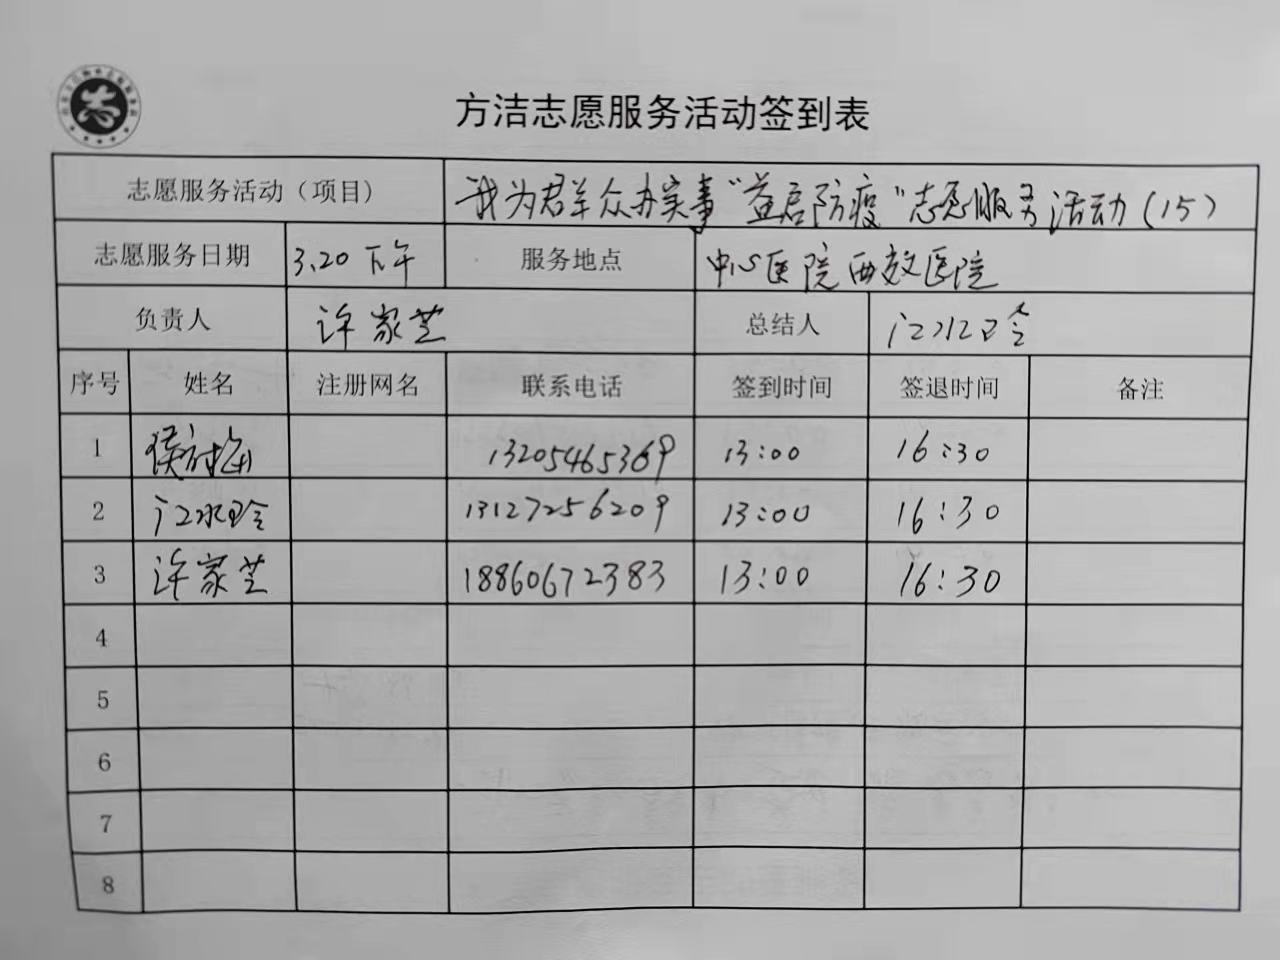 方洁志愿服务活动签到表
志愿服务活动（项目） 我为群众办实事"益启防疫"志愿服务活动(15)
志愿服务日期 3.20下午 服务地点 中心医院西教医院
负责人 许家芝 总结人 江水玲
序号 姓名 注册网名 联系电话 签到时间 签退时间 备注
1 侯梅 13205465369 13:00 16:30
2 江水玲 13127256209 13:00 16:30
3 许家芝 18860672383 13:00 16:30
4
5
6
7
8